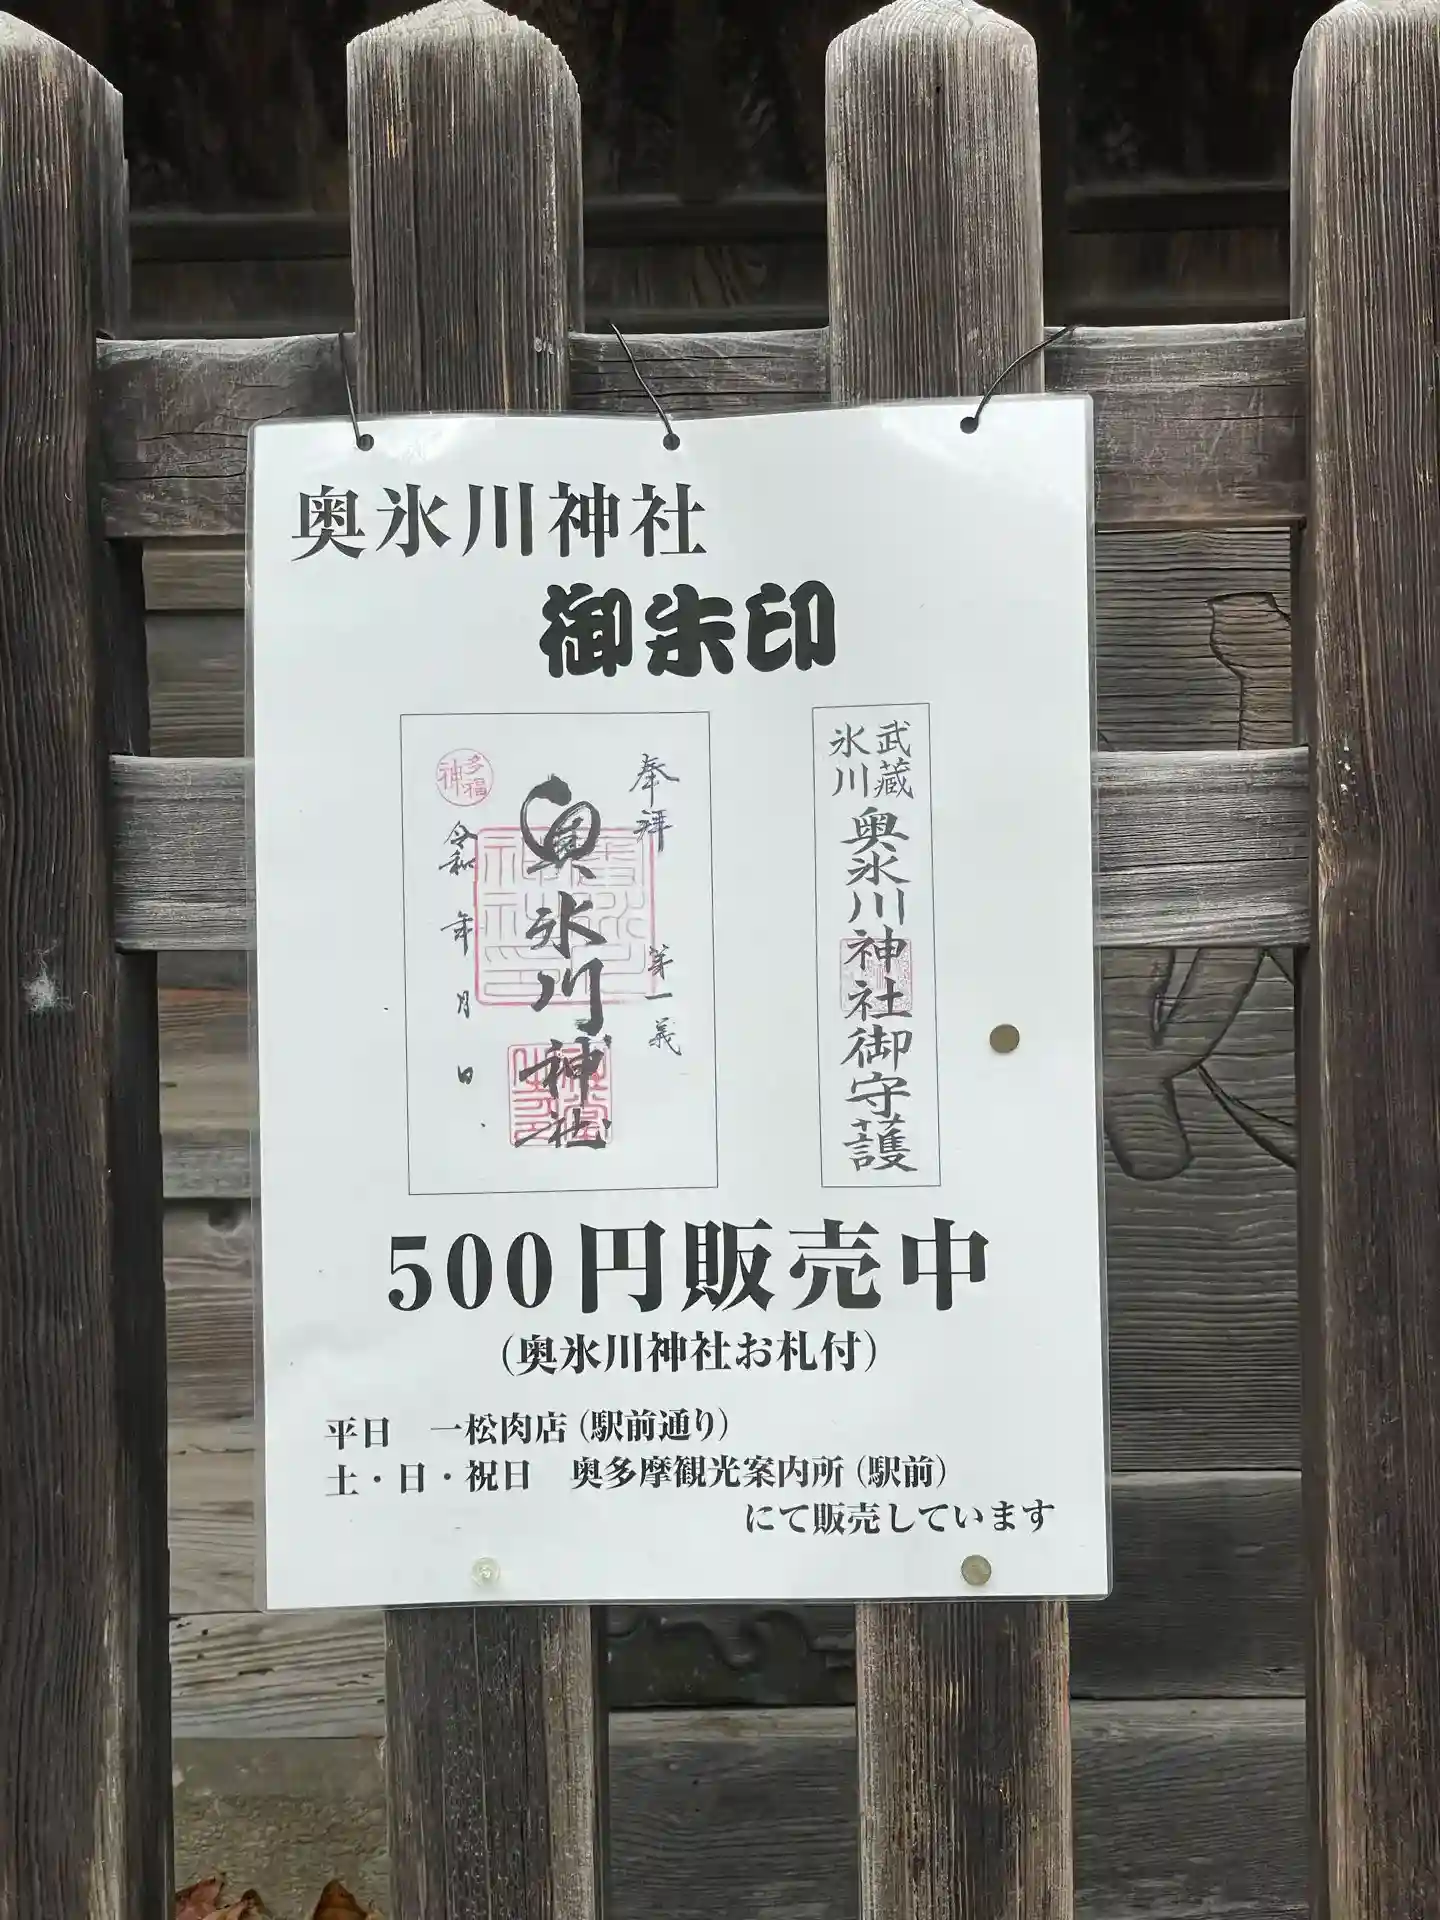 奥氷川神社
御朱印
奉拝
第一義
奥氷川神社
多福神
令和 年 月 日
武蔵氷川
奥氷川神社御守護
500円販売中
(奥氷川神社お札付)
平日 一松肉店(駅前通り)
土・日・祝日 奥多摩観光案内所(駅前)
にて販売しています